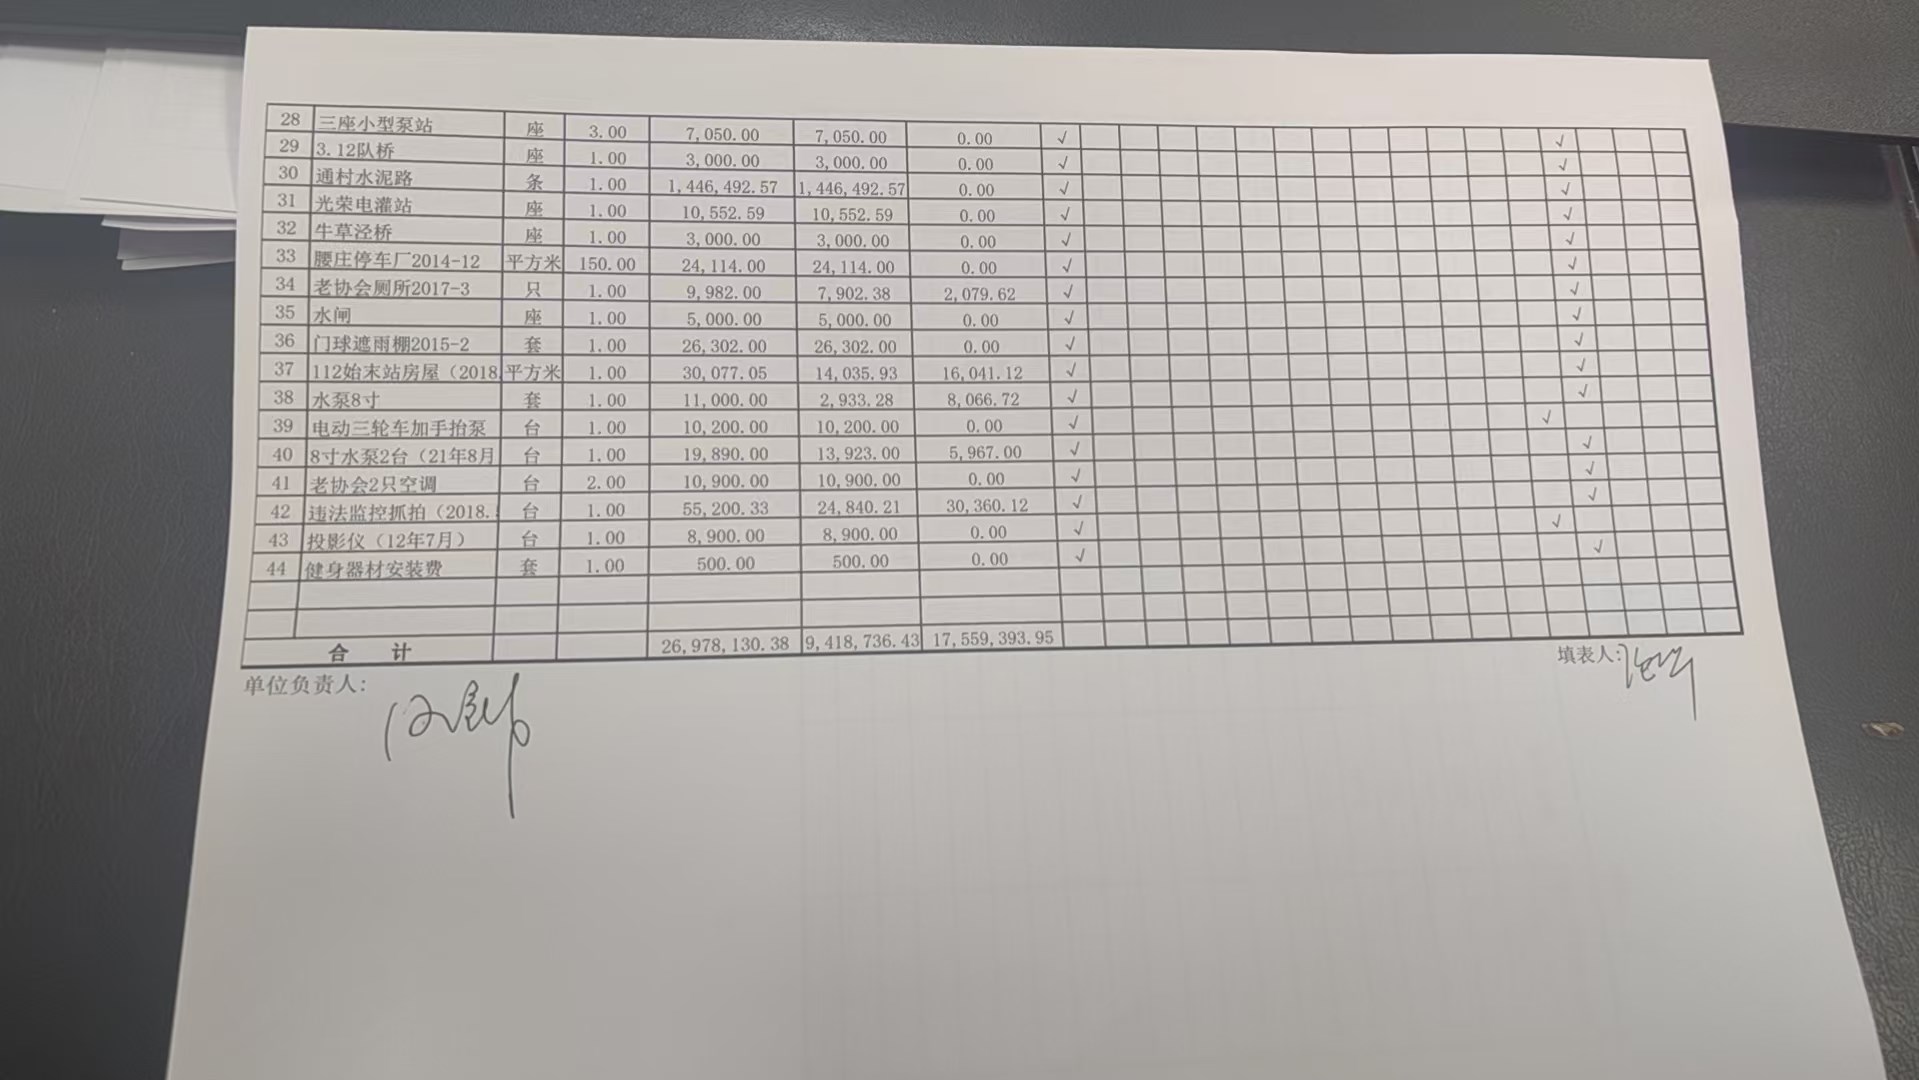 28 三座小型泵站 座 3.00 7,050.00 7,050.00 0.00 √ √
29 3.12队桥 座 1.00 3,000.00 3,000.00 0.00 √ √
30 通村水泥路 条 1.00 1,446,492.57 1,446,492.57 0.00 √ √
31 光荣电灌站 座 1.00 10,552.59 10,552.59 0.00 √ √
32 牛草泾桥 座 1.00 3,000.00 3,000.00 0.00 √ √
33 腰庄停车厂2014-12 平方米 150.00 24,114.00 24,114.00 0.00 √ √
34 老协会厕所2017-3 只 1.00 9,982.00 7,902.38 2,079.62 √ √
35 水闸 座 1.00 5,000.00 5,000.00 0.00 √ √
36 门球遮雨棚2015-2 套 1.00 26,302.00 26,302.00 0.00 √ √
37 112始末站房屋（2018. 平方米 1.00 30,077.05 14,035.93 16,041.12 √ √
38 水泵8寸 套 1.00 11,000.00 2,933.28 8,066.72 √ √
39 电动三轮车加手抬泵 台 1.00 10,200.00 10,200.00 0.00 √ √
40 8寸水泵2台（21年8月 台 1.00 19,890.00 13,923.00 5,967.00 √ √
41 老协会2只空调 台 2.00 10,900.00 10,900.00 0.00 √ √
42 违法监控抓拍（2018. 台 1.00 55,200.33 24,840.21 30,360.12 √ √
43 投影仪（12年7月） 台 1.00 8,900.00 8,900.00 0.00 √ √
44 健身器材安装费 套 1.00 500.00 500.00 0.00 √ √
合 计 26,978,130.38 9,418,736.43 17,559,393.95
单位负责人: 填表人: